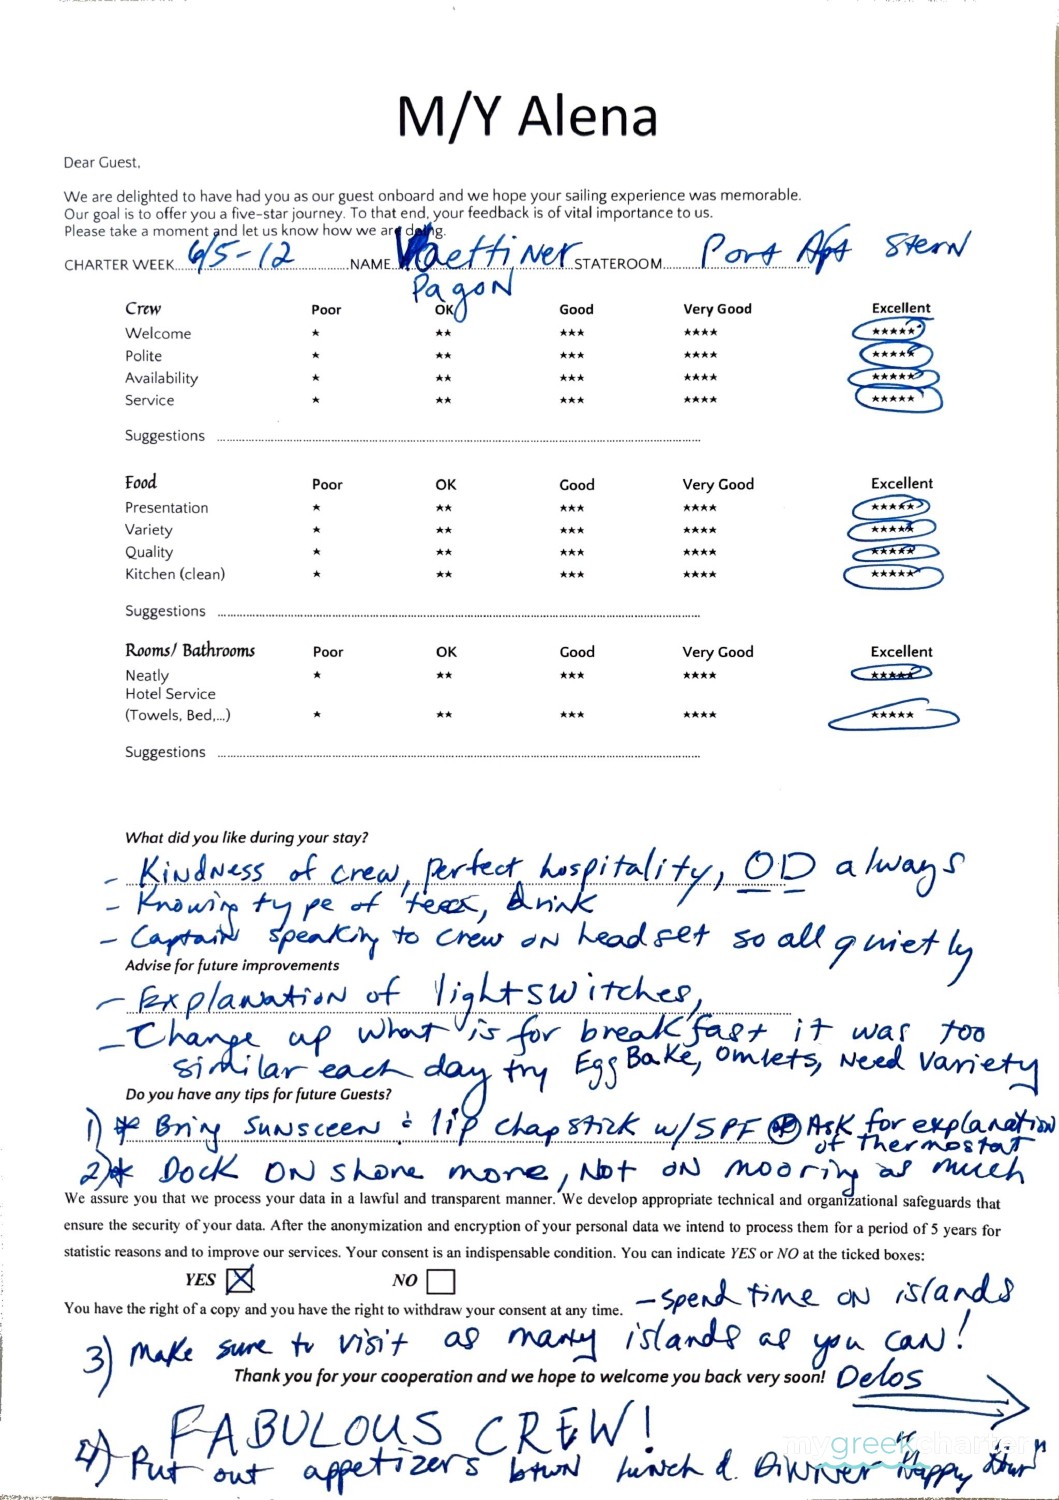 M/Y Alena
Dear Guest,
We are delighted to have had you as our guest onboard and we hope your sailing experience was memorable.
Our goal is to offer you a five-star journey. To that end, your feedback is of vital importance to us.
Please take a moment and let us know how we are doing.
CHARTER WEEK 6/5-12 NAME STATEROOM Port Aft Stern
Pagon
Crew Poor OK Good Very Good Excellent
Welcome ★ ★★ ★★★ ★★★★ ★★★★★
Polite ★ ★★ ★★★ ★★★★ ★★★★★
Availability ★ ★★ ★★★ ★★★★ ★★★★★
Service ★ ★★ ★★★ ★★★★ ★★★★★
Suggestions
Food Poor OK Good Very Good Excellent
Presentation ★ ★★ ★★★ ★★★★ ★★★★★
Variety ★ ★★ ★★★ ★★★★ ★★★★★
Quality ★ ★★ ★★★ ★★★★ ★★★★★
Kitchen (clean) ★ ★★ ★★★ ★★★★ ★★★★★
Suggestions
Rooms/ Bathrooms Poor OK Good Very Good Excellent
Neatly ★ ★★ ★★★ ★★★★ ★★★★★
Hotel Service
(Towels, Bed,...) ★ ★★ ★★★ ★★★★ ★★★★★
Suggestions
What did you like during your stay?
- Kindness of crew, perfect hospitality, OD always
- Knowing type of drink
- Captain speaking to crew on headset so all quietly
Advise for future improvements
- Explanation of lightswitches,
- Change up what is for breakfast it was too
similar each day try Egg Bake, Omlets, Need Variety
Do you have any tips for future Guests?
1) * Bring Sunsceen & lip chapstick w/SPF * Ask for explanation
of thermostat
2) * Dock on shore more, Not on mooring as much
We assure you that we process your data in a lawful and transparent manner. We develop appropriate technical and organizational safeguards that
ensure the security of your data. After the anonymization and encryption of your personal data we intend to process them for a period of 5 years for
statistic reasons and to improve our services. Your consent is an indispensable condition. You can indicate YES or NO at the ticked boxes:
YES NO
You have the right of a copy and you have the right to withdraw your consent at any time. - Spend time on islands
3) Make sure to visit as many islands as you can!
Thank you for your cooperation and we hope to welcome you back very soon! Delos
FABULOUS CREW!
mygreekcharter
4) Put out appetizers btwn lunch & Dinner "Happy Hour"